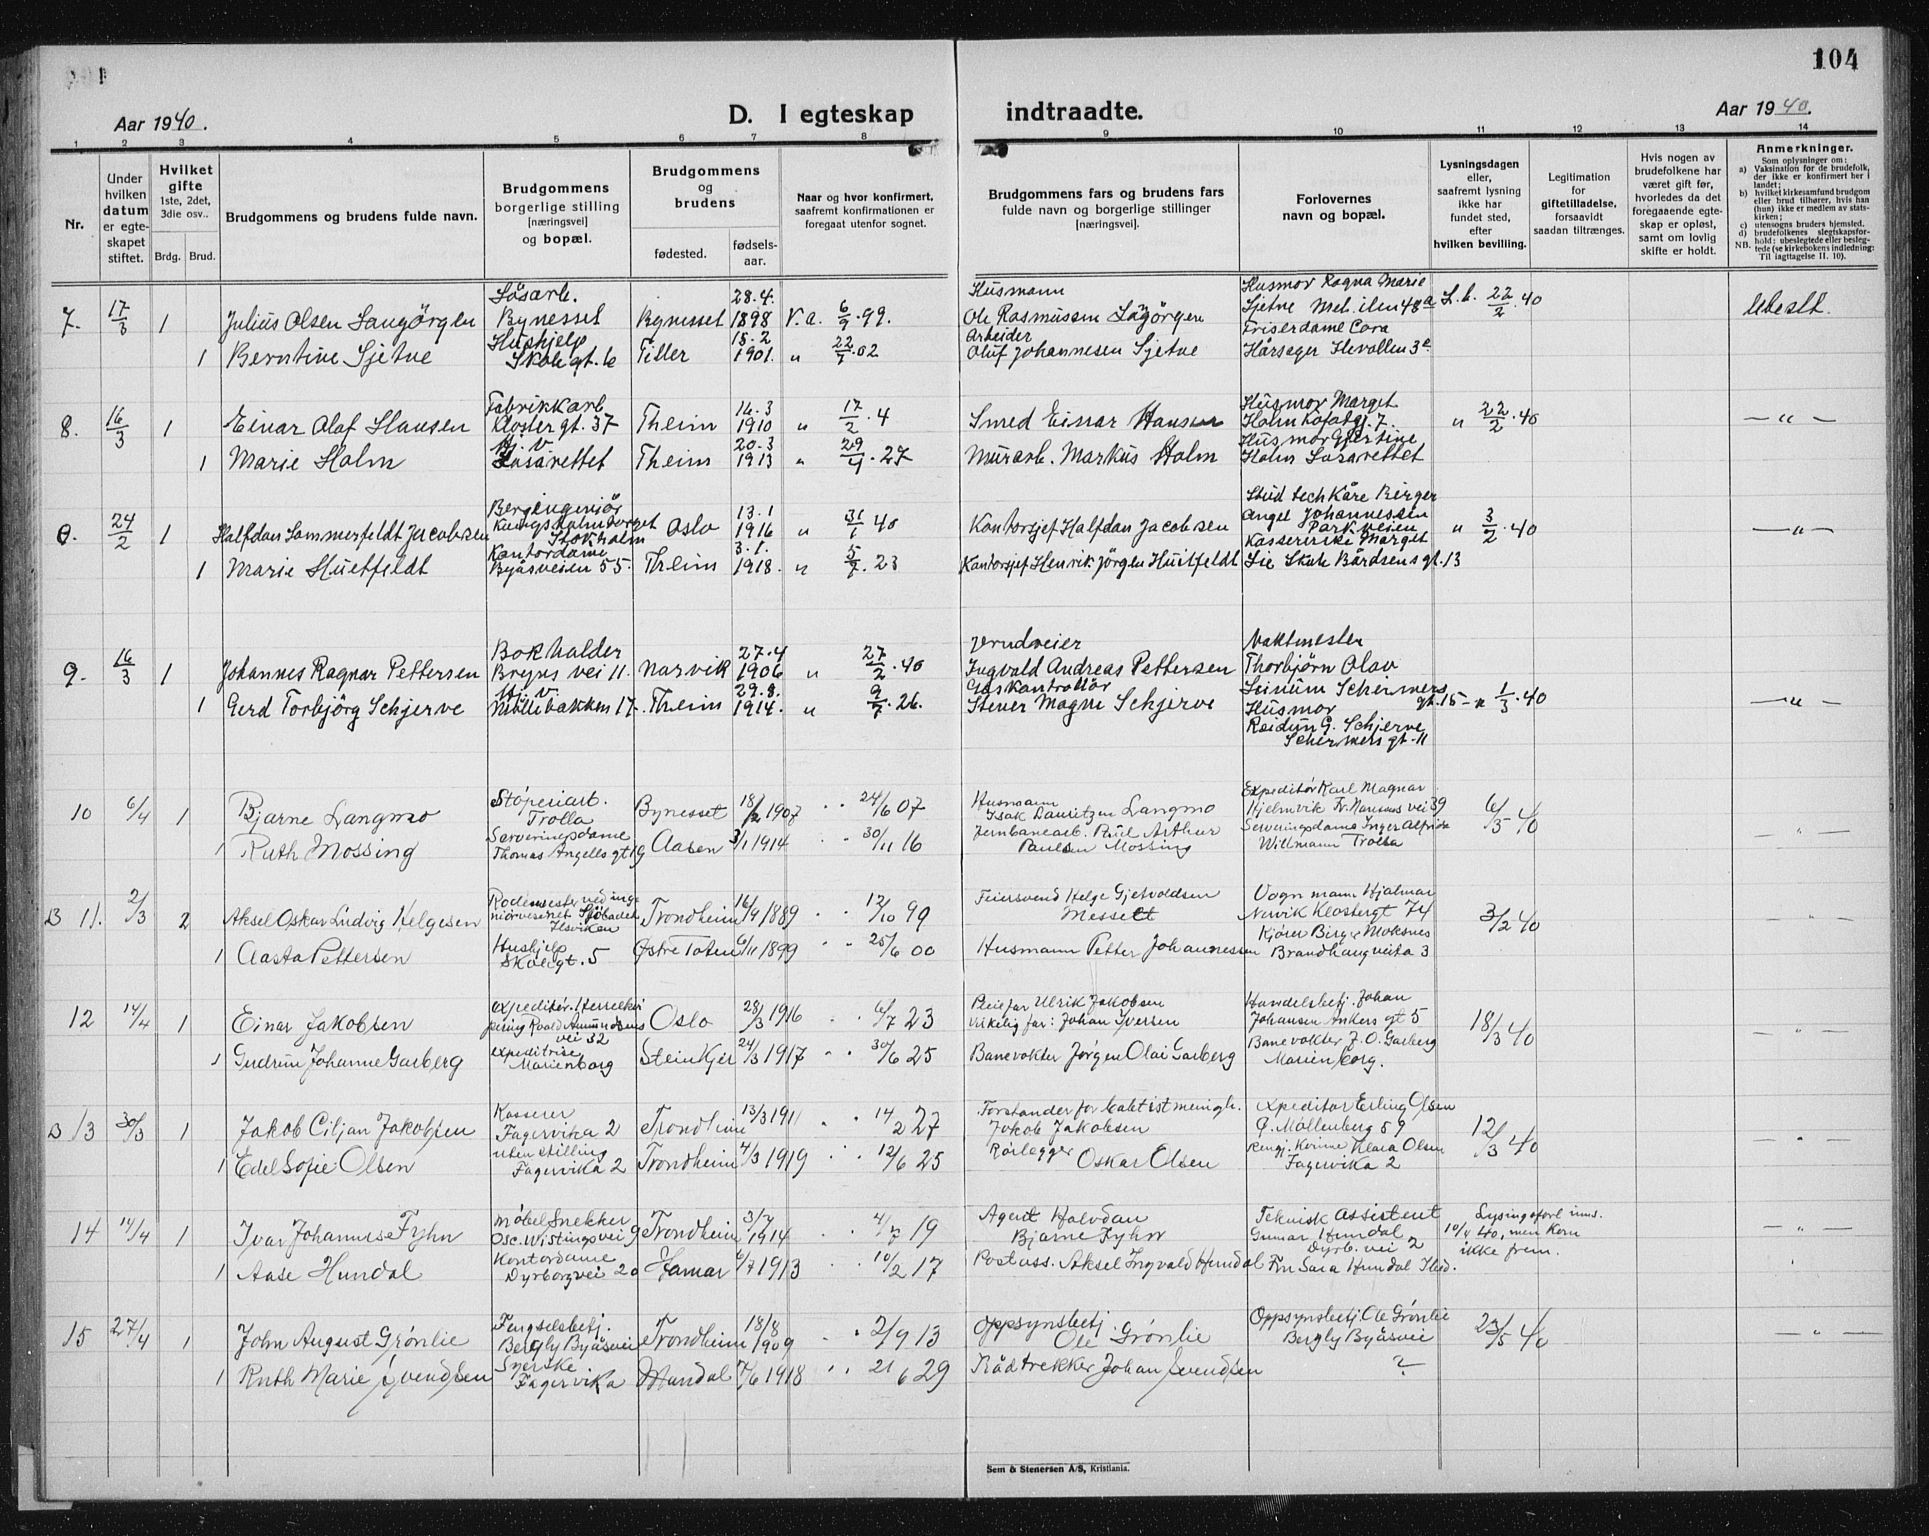 104
Aar 1940.
D. I egteskap indtraadte.
Aar 1940.
1 2 3 4 5 6 7 8 9 10 11 12 13 14
Nr.
Under hvilken datum er egteskapet stiftet.
Hvilket gifte 1ste, 2det, 3die osv..
Brdg. Brud.
Brudgommens og brudens fulde navn.
Brudgommens borgerlige stilling [næringsvei] og bopæl.
Brudgommens og brudens
fødested.
fødselsaar.
Naar og hvor konfirmert, saafremt konfirmationen er foregaat utenfor sognet.
Brudgommens fars og brudens fars fulde navn og borgerlige stillinger [næringsvei].
Forlovernes navn og bopæl.
Lysningsdagen eller, saafremt lysning ikke har fundet sted, efter hvilken bevilling.
Legitimation for giftetilladelse, forsaavidt saadan tiltrænges.
Hvis nogen av brudefolkene har været gift før, hvorledes da det foregaaende egteskap er opløst, samt om lovlig skifte er holdt.
Anmerkninger.
Som oplysninger om:
a) Vaksination for de brudefolk, der ikke er konfirmert her i landet;
b) hvilket kirkesamfund brudgom eller brud tilhører, hvis han (hun) ikke er medlem av statskirken;
c) utensogns bruders hjemsted.
d) brudefolkenes slegtskapsforhold: ubeslegtede eller beslegtede (se kirkebokens indledning:
NB. Til iagttagelse II. 10).
7. 17/3 1 Julius Olsen Saugörgen Løsarb. Bynesset Bynesset 28.4. 1898 V.a. 6/9.99. Husmann Ole Rasmussen Husmor Ragna Marie Sjetne 22/2.40 Ubeslt.
1 Berntine Sjetne Hushjelp Skole gt. 6 Tiller 15.2 1901. " .02 Arbeider Oluf Johannesen Sjetne Friserdame Cora Ilevollen 3
8. 16/3 1 Einar Olaf Hansen Fabrikkarb Kloster gt. 37 Theim 14.3 1910 " 17/2.4 Smed Einar Hansen Husmor Marget Holm 7. " 22/2.40 — " —
1 Marie Holm Hj. v. Lasarettet Theim 20.3 1913 " 29/4.27 Murarb. Markus Holm Husmor Gjertine Holm Lasarettet
24/2 1 Halfdan Sommerfeldt Jacobsen Bergingeniør Kungsholmstorget Stokholm Oslo 13.1 1916 " 31/1.40 Kontorsjef Halfdan Jacobsen Stud tech Kåre Birger Angel Johannessen Parkveien " 3/2.40 — " —
1 Marie Huitfeldt Kontordame Byåsveien 55. Theim 3.1. 1918. " 5/7.23 Kontorsjef Henrik Jörgen Huitfeldt Kassererske Marget Lie Skule Bårdsens gt. 13
9. 16/3 1 Johannes Ragnar Pettersen Bokholder Bryns vei 11. Narvik 27.4 1906 " 27/2.40 Ingvald Andreas Pettersen Vaktmester Thorbjörn Olav Schirmers gt. 15 — " 1/3.40 — " —
1 Gerd Torbjörg Schjerve Hj. v. Möllebakken 17. Theim 29.8. 1914. " 9/7.26. Gaskontrollör Stener Magne Schjerve Husmor Reidun G. Schjerve Schirmers gt. 11
10 6/4 1 Bjarne Langmo Støperiarb. Trolla Bynesset 18/2 1907 " 24/6 07 Husmann Isak Lauritzen Langmo Expeditør Karl Magnar Hjelmvik Fr. Nansens vei 39 6/3 40 — " —
1 Ruth Mossing Serveringsdame Thomas Angells gt 19 Aasen 3/1 1914 " 30/11 16 Jernbanearb. Paul Arthur Paulsen Mossing Serveringsdame Inger Alfrida Willmann Trolla
B 11. 2/3 2 Aksel Oskar Ludvig Helgesen Rodemester ved ingeniørvesenet Sjøbadet Ilsviken Trondheim 16/9 1889 " 12/10 99 Feiersvend Helge Gjetvoldsen Messelt Vognmann Hjalmar Nervik Klostergt 74 3/2 40 — " —
1 Aasta Pettersen Hushjelp Skolegt. 5 Østre Toten 6/11 1899 " 25/6 00 Husmann Petter Johannessen Kjører Birger Moksnes Brandhaugveita 3
12 14/4 1 Einar Jakobsen Expeditør. Roald Amundsens vei 32 Oslo 28/3 1916 " 6/7 23 Pleiefar Ulrik Jakobsen Virkelig far: Johan Iversen Handelsbetj. Johan Johansen Ankers gt 5 18/3 40 — " —
1 Gudrun Johanne Garberg expeditrise Marienborg Steinkjer 24/3 1917 " 30/6 25 Banevokter Jørgen Olai Garberg Banevokter J. O. Garberg Marienborg.
B 13 30/3 1 Jakob Ciljan Jakobsen Kasserer Fagervika 2 Trondheim 13/3 1911 " 14/2 27 Forstander for baptistmenigh. Jakob Jakobsen Expeditør Erling Olsen Ø. Møllenberg 59 12/3 40 — " —
1 Edel Sofie Olsen uten stilling Fagervika 2 Trondheim 4/3 1919 " 12/6 25 Rørlegger Oskar Olsen Rengj. Kvinne Klara Olsen Fagervika 2
14 14/4 1 Ivar Johannes Fyhn Møbelsnekker Osc. Wistingsvei 9 Trondheim 3/7 1914 4/7 19 Agent Halvdan Bjarne Fyhn Teknisk Assistent Gunnar Hundal Dyrb. vei 2 Lysingsforl. inns. 10/4 40, men kom ikke frem. — " —
1 Aase Hundal Kontordame Dyrborgvei 2 Hamar 6/7 1913 " 10/2 17 Postass. Aksel Ingvald Hundal Fru Sara Hundal
15 27/4 1 John August Grønlie Fengselsbetj. Bergly Byåsvei Trondheim 18/8 1909 " 2/9 13 Oppsynsbetj. Ole Grønlie Oppsynsbetj. Ole Grønlie Bergly Byåsvei 23/5 40 — " —
1 Ruth Marie Svendsen Syerske Fagervika Mandal 7/6 1918 " 21/6 29 Rådtrekker Johan Svendsen ?
Sem & Stenersen A/S, Kristiania.